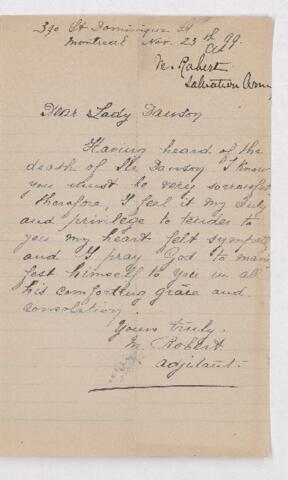 390 St Dominique St
Montreal Nov. 23rd 99.
M. Robert
Salvation Army
Dear Lady Dawson
Having heard of the
death of Sir Dawson I know
you must be very sorrowful
therefore, I feel it my duty
and privilege to tender to
you my heart felt sympathy
and I pray God to mani
fest himself to you in all
his comforting grace and
consolation
Yours truly.
M. Robert
adjutant.